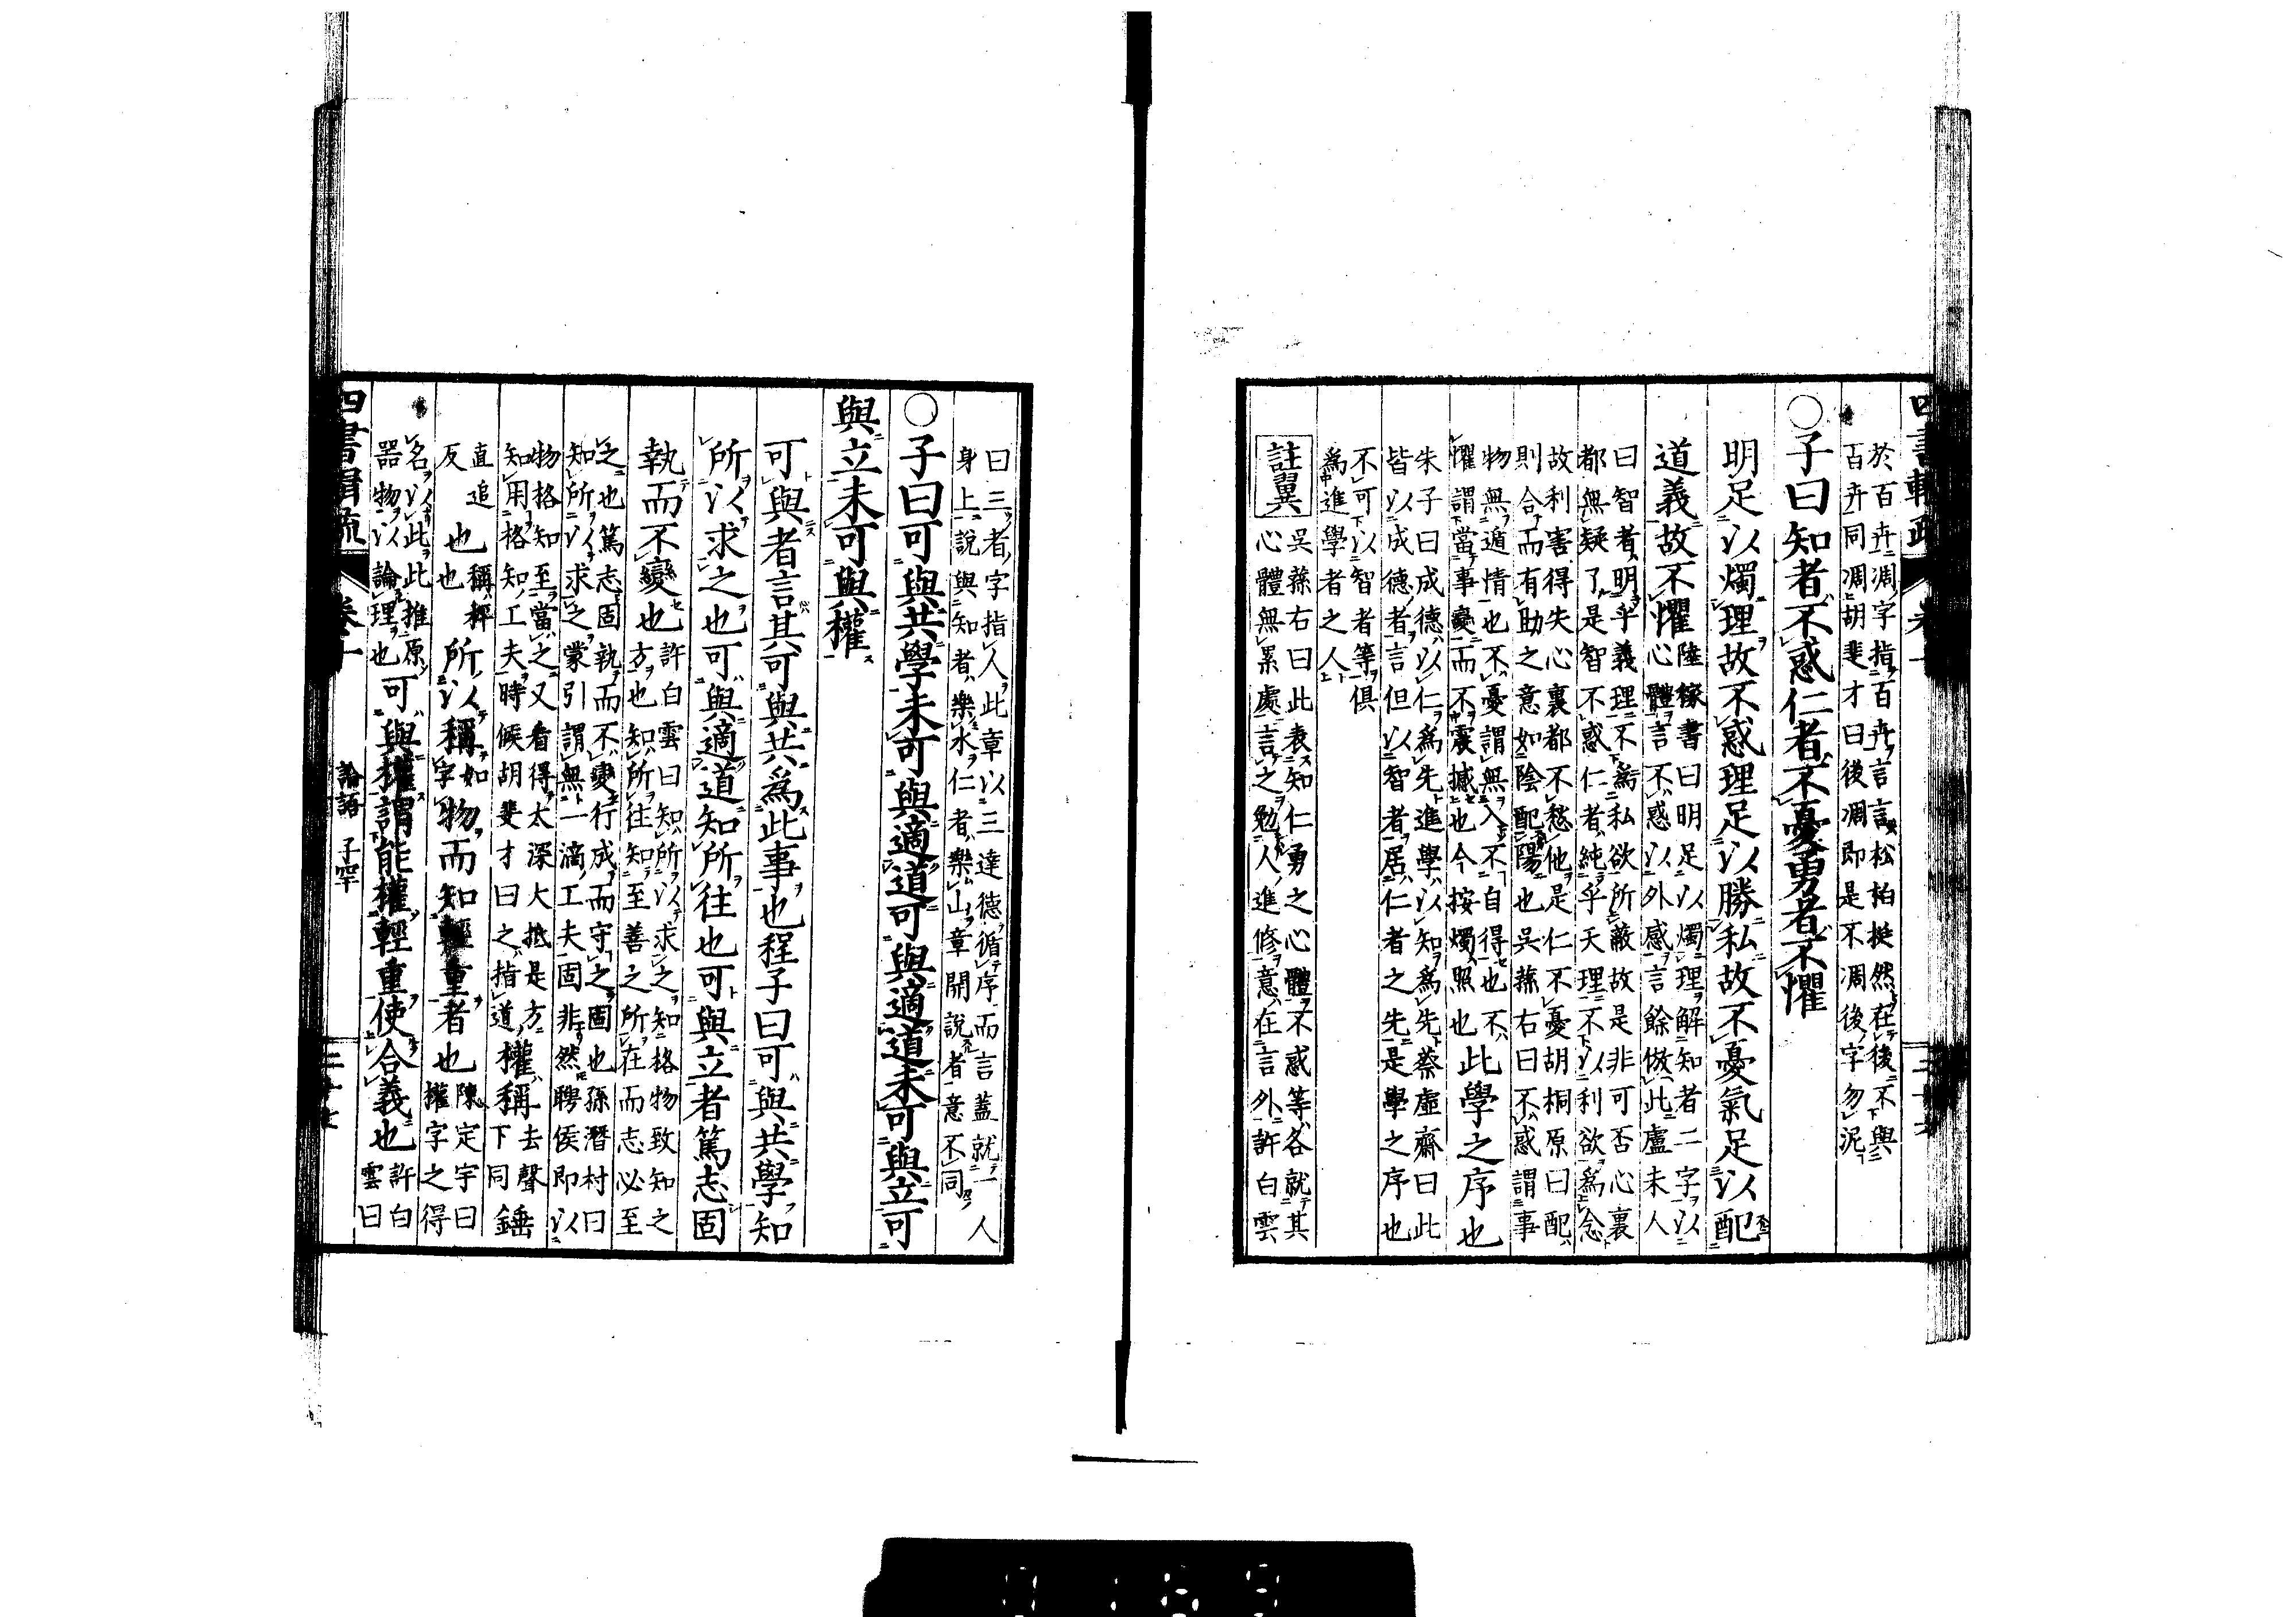 於百卉凋字指百卉言言松柏挺然在後不與
百卉同凋胡斐才曰後凋即是不凋後字勿泥
○子曰知者不惑仁者不憂勇者不懼
明足以燭理故不惑理足以勝私故不憂氣足以配
道義故不懼
陸稼書曰明足以燭理解知者二字以
心體言不惑以外感言餘倣此盧未人
曰智者明乎義理不為私欲所蔽故是非可否心裏
都無疑了是智不惑仁者純乎天理不以利欲為念
故利害得失心裏都不愁他是仁不憂胡桐原曰配
則合而有助之意如陰配陽也吳蓀右曰不惑謂事
物無遁情也不憂謂無入不自得也不
懼謂當事變而不震撼也今按燭照也
此學之序也
朱子曰成德以仁為先進學以知為先蔡虛齋曰此
皆以成德者言但以智者居仁者之先是學之序也
不可以智者等俱
為進學者之人
註翼
吳蓀右曰此表知仁勇之心體不惑等各就其
心體無累處言之勉人進修意在言外許白雲
曰三者字指人此章以三達德循序而言蓋就一人
身上說與知者樂水仁者樂山章開說者意不同
○子曰可與共學未可與適道可與適道未可與立可
與立未可與權
可與者言其可與共為此事也程子曰可與共學知
所以求之也可與適道知所往也可與立者篤志固
執而不變也
許白雲曰知所以求之知格物致知之
方也知所往知至善之所在而志必至
之也篤志固執而不變行成而守之固也孫潛村曰
知所以求之蒙引謂無一滴工夫固非然聘侯即以
物格知至當之又看得太深大抵是方
知用格知工夫時候胡斐才曰之指道
權稱去聲下同錘
直追反也稱秤也
所以稱
如字
物而知輕重者也
陳定宇曰
權字之得
名以此此推原
器物以論理也
可與權謂能權輕重使合義也
許白
雲曰
四書輯疏
論語 子罕